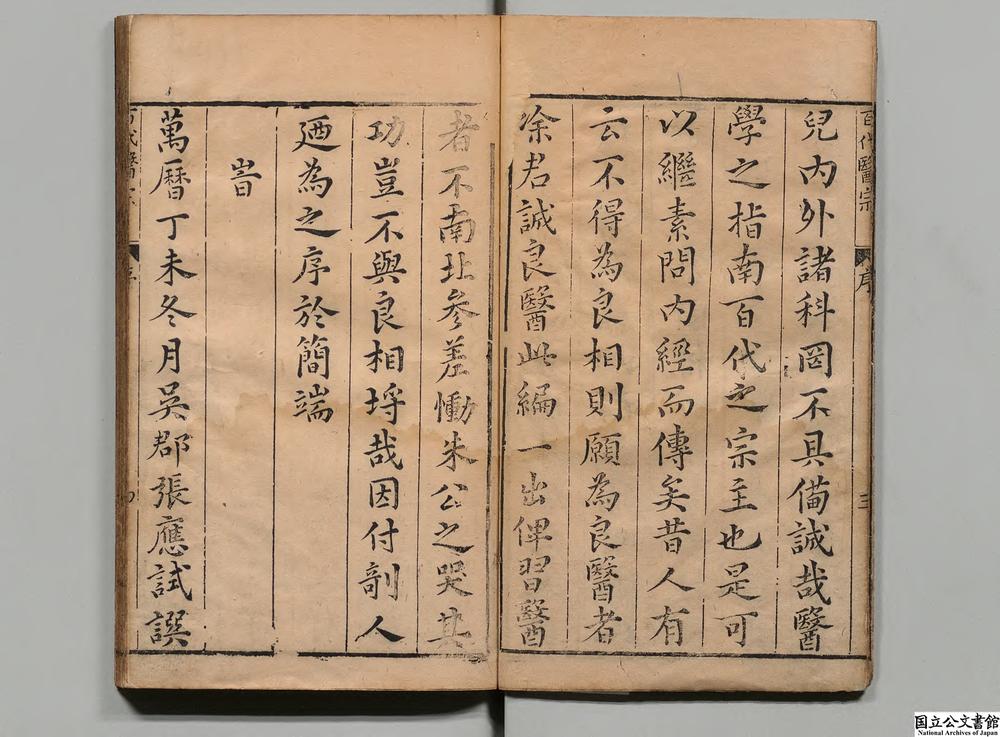 百代醫宗 序 三
兒內外諸科罔不具備誠哉醫
學之指南百代之宗主也是可
以繼素問內經而傳矣昔人有
云不得為良相則願為良醫者
徐君誠良醫此編一出俾習醫
者不南北參差慟朱公之哭其
功豈不與良相埒哉因付剞人
廼為之序於簡端
旹
萬曆丁未冬月吳郡張應試譔
代醫 序
国立公文書館
National Archives of Japan